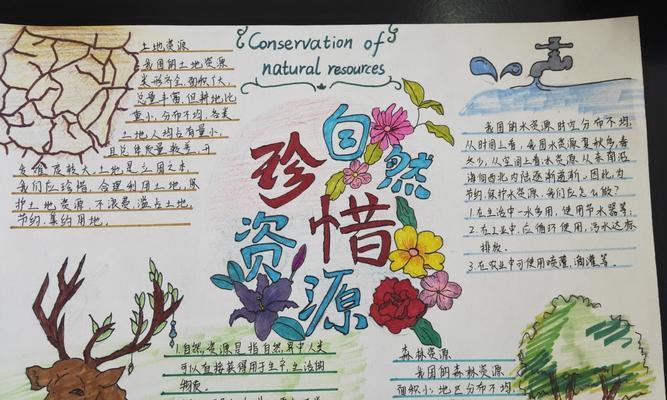 Conservation of
natural resources
珍惜
自然
资源
土地资源
我国的土地资源
类形齐全,面积广大
总量丰富,但耕地比
重小,分布不均,各类
土地人均占有量小,
且总体质量较差,开
发难度较大,土地是立国之本,
我们应珍惜、合理利用土地,保
护土地资源,不浪费、滥占土地,
节约、集约用地。
我国的水资源时空分布不均,
从时间上看,我国水资源夏秋多,春
冬少,从空间上看水资源从东南沿
海向西北内陆逐渐递渐,因此,为
节约、保护水资源,我们应怎么做?
1.在生活中一水多用,使用节水器等;
2.在工业中,应循环使用,污水达标
排放。
3.在农业中可使用喷灌、滴灌等。
1.自然资源是指自然界中人类
可以直接获得用于生产、生活的
物质。
森林资源
我国的森林资源
面积小,地区分布不均,